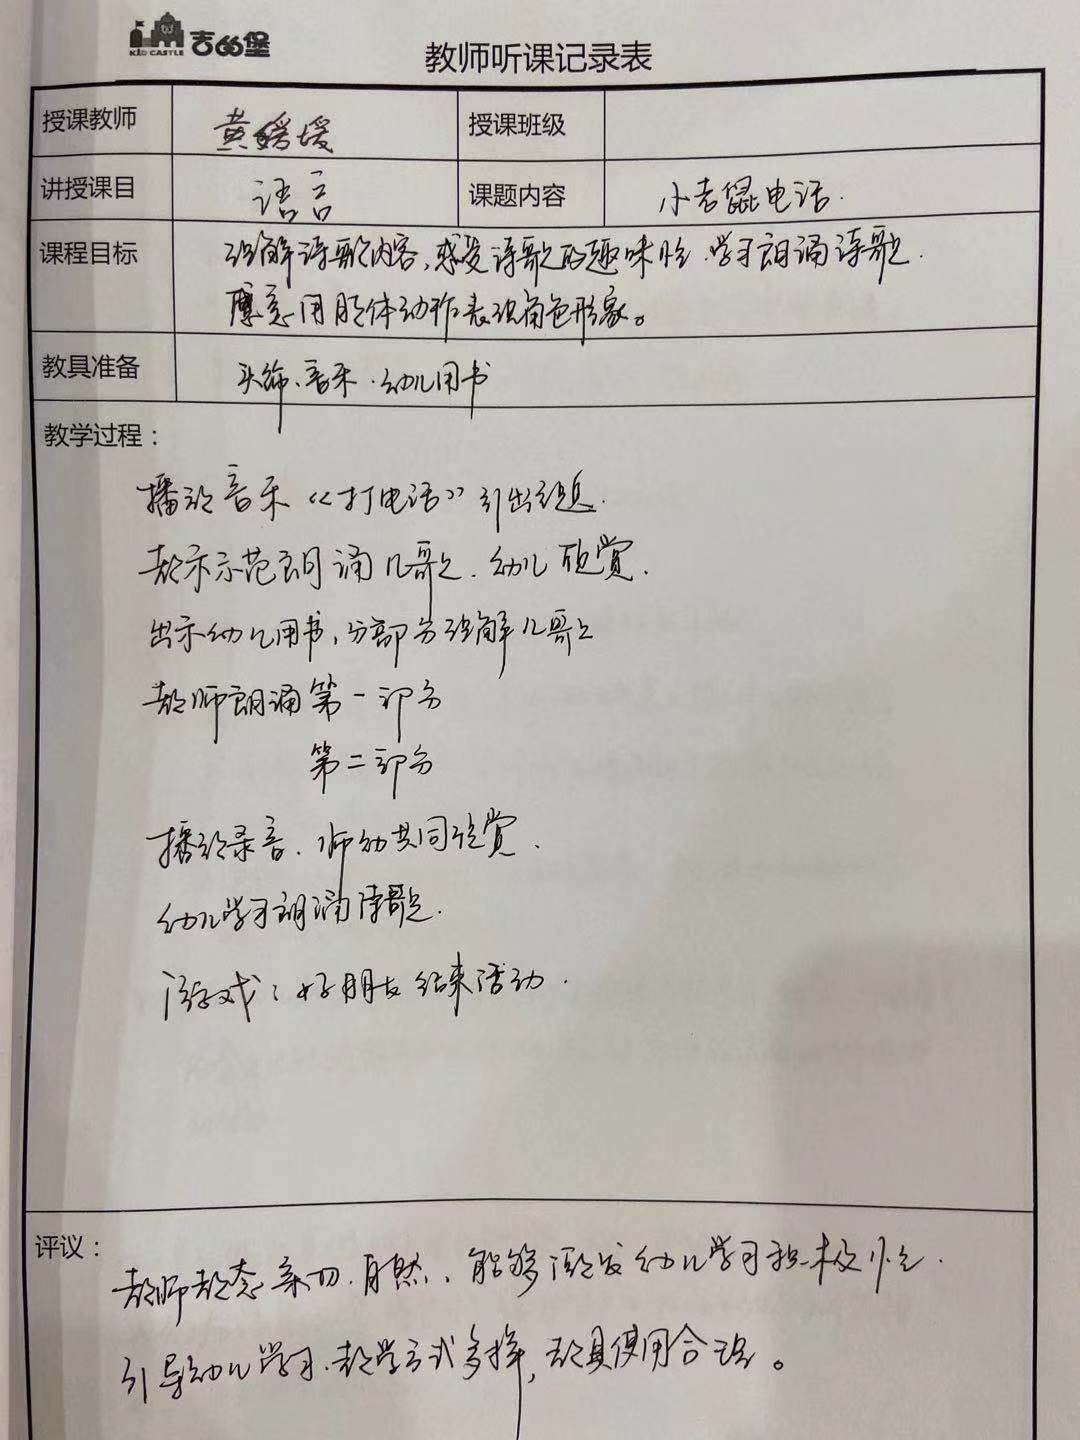 KID CASTLE 吉的堡
教师听课记录表
授课教师 黄媛媛 授课班级
讲授课目 语言 课题内容 小老鼠电话.
课程目标 理解诗歌内容,感受诗歌的趣味性.学习朗诵诗歌.
愿意用肢体动作表现角色形象。
教具准备 头饰、音乐.幼儿用书
教学过程：
播放音乐《打电话》引出主题.
教师示范朗诵儿歌.幼儿欣赏.
出示幼儿用书,分部分理解儿歌
教师朗诵第一部分
第二部分
播放录音.师幼共同欣赏.
幼儿学习朗诵诗歌.
游戏:好朋友 结束活动.
评议：
教师教态亲切.自然、能够激发幼儿学习积极性.
引导幼儿学习.教学方式多样,教具使用合理。